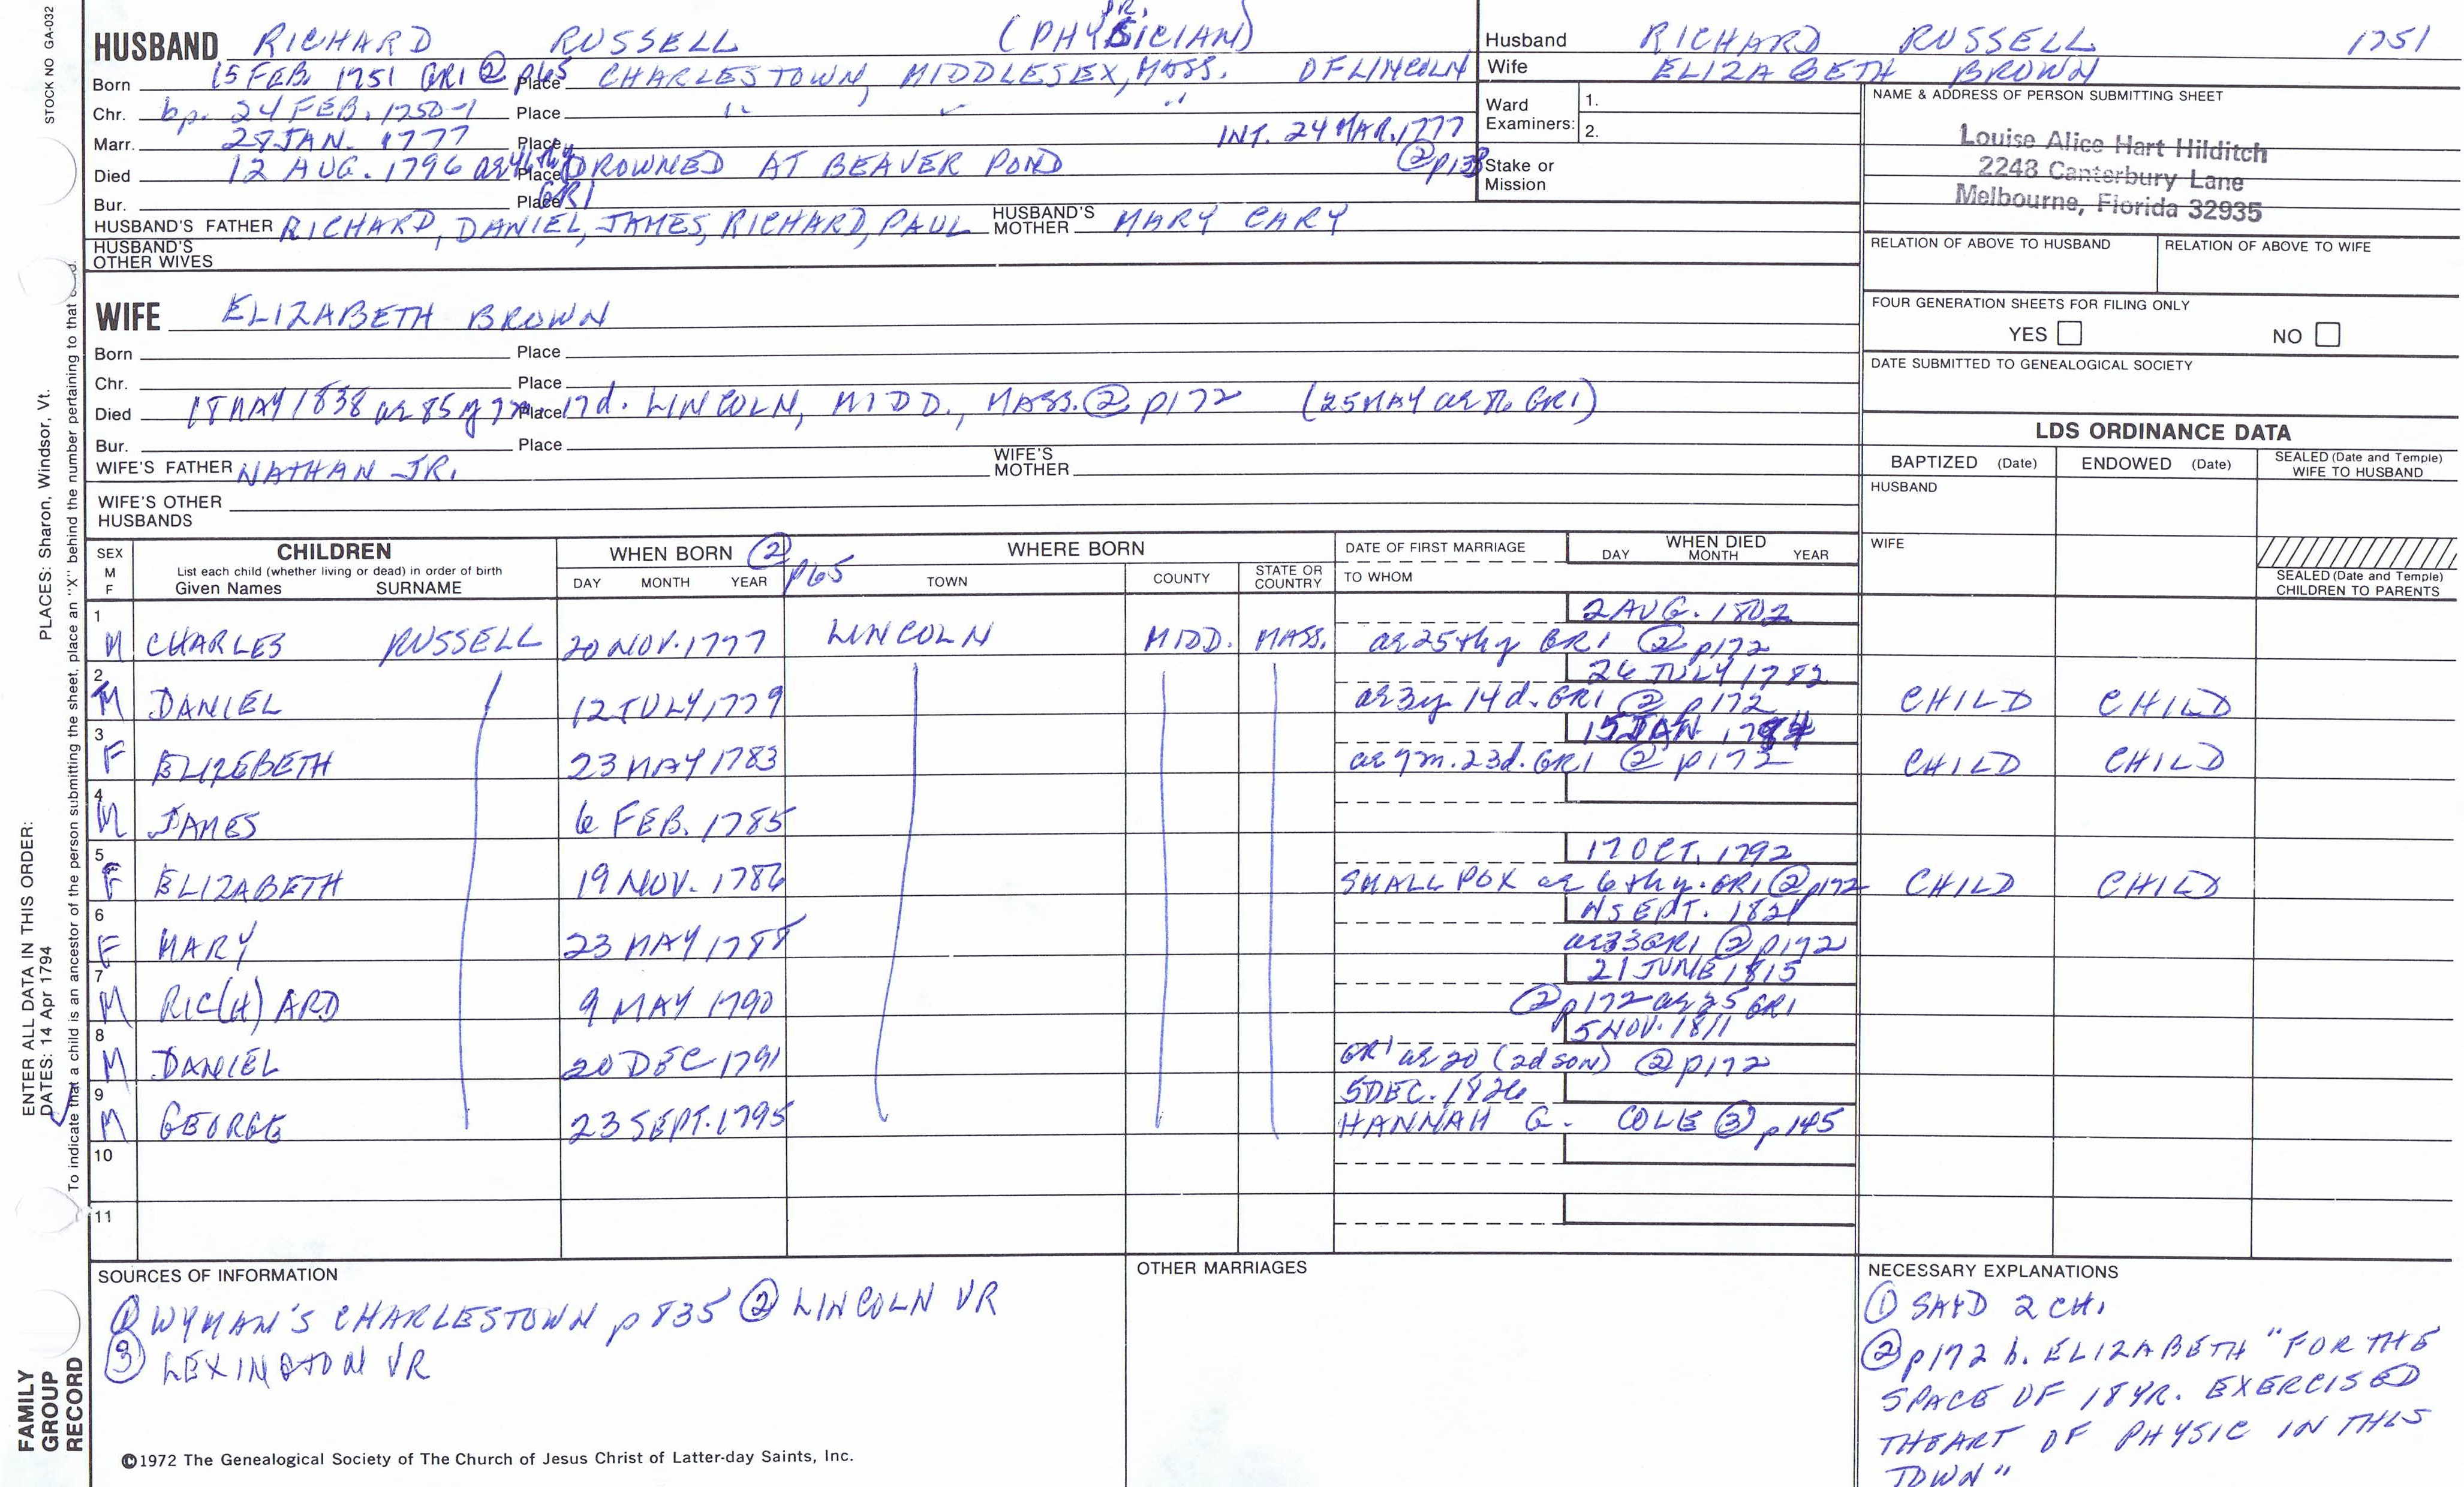 STOCK NO GA-032
HUSBAND RICHARD RUSSELL DR. (PHYSICIAN)
Born 15 FEB 1751 GR1 ② p65 Place CHARLESTOWN, MIDDLESEX, MASS. OF LINCOLN
Chr. bp. 24 FEB. 1750-1 Place " " "
Marr. 28 JAN. 1777 Place INT. 24 MAR. 1777
Died 12 AUG. 1796 ae 46thy Place DROWNED AT BEAVER POND ② p138
Bur. Place GR1
HUSBAND'S FATHER RICHARD, DANIEL, JAMES, RICHARD, PAUL HUSBAND'S MOTHER MARY CARY
HUSBAND'S OTHER WIVES
WIFE ELIZABETH BROWN
Born Place
Chr. Place
Died 18 MAY 1838 ae 85y 7m Place 17d. LINCOLN, MIDD., MASS. ② p172 (25 MAY GR1)
Bur. Place
WIFE'S FATHER NATHAN JR. WIFE'S MOTHER
WIFE'S OTHER HUSBANDS
Husband RICHARD RUSSELL 1751
Wife ELIZABETH BROWN
Ward Examiners: 1.
2.
Stake or Mission
NAME & ADDRESS OF PERSON SUBMITTING SHEET
Louise Alice Hart Hilditch
2248 Canterbury Lane
Melbourne, Florida 32935
RELATION OF ABOVE TO HUSBAND RELATION OF ABOVE TO WIFE
FOUR GENERATION SHEETS FOR FILING ONLY
YES NO
DATE SUBMITTED TO GENEALOGICAL SOCIETY
LDS ORDINANCE DATA
BAPTIZED (Date) ENDOWED (Date) SEALED (Date and Temple) WIFE TO HUSBAND
HUSBAND
WIFE
SEALED (Date and Temple) CHILDREN TO PARENTS
SEX M F CHILDREN WHEN BORN ② p65 WHERE BORN DATE OF FIRST MARRIAGE WHEN DIED
List each child (whether living or dead) in order of birth DAY MONTH YEAR
Given Names SURNAME DAY MONTH YEAR TOWN COUNTY STATE OR COUNTRY TO WHOM
1 2 AUG. 1802
M CHARLES RUSSELL 20 NOV. 1777 LINCOLN MIDD. MASS. ae 25thy GR1 ② p172
2 26 JULY 1782
M DANIEL 12 JULY 1779 ae 3y 14d. GR1 ② p172 CHILD CHILD
3 15 JAN. 1784
F ELIZEBETH 23 MAY 1783 ae 7m. 23d. GR1 ② p172 CHILD CHILD
4
M JAMES 6 FEB. 1785
5 17 OCT. 1792
F ELIZABETH 19 NOV. 1786 SMALL POX ae 6thy. GR1 ② p172 CHILD CHILD
6 SEPT. 1821
F MARY 23 MAY 1788 ae 33 GR1 ② p172
7 21 JUNE 1815
M RIC(H)ARD 9 MAY 1790 ② p172 ae 25 GR1
8 5 NOV. 1811
M DANIEL 20 DEC 1791 GR1 ae 20 (2d son) ② p172
9 5 DEC. 1826
M GEORGE 23 SEPT. 1795 HANNAH G. COLE ③ p145
10
11
SOURCES OF INFORMATION
① WYMAN'S CHARLESTOWN p 835 ② LINCOLN VR
③ LEXINGTON VR
©1972 The Genealogical Society of The Church of Jesus Christ of Latter-day Saints, Inc.
OTHER MARRIAGES
NECESSARY EXPLANATIONS
① SAYD 2 CH.
② p172 h. ELIZABETH "FOR THE
SPACE OF 18 YR. EXERCISED
THE ART OF PHYSIC IN THIS
TOWN"
PLACES: Sharon, Windsor, Vt.
ENTER ALL DATA IN THIS ORDER:
DATES: 14 Apr 1794
To indicate that a child is an ancestor of the person submitting the sheet, place an "X" behind the number pertaining to that
FAMILY
GROUP
RECORD